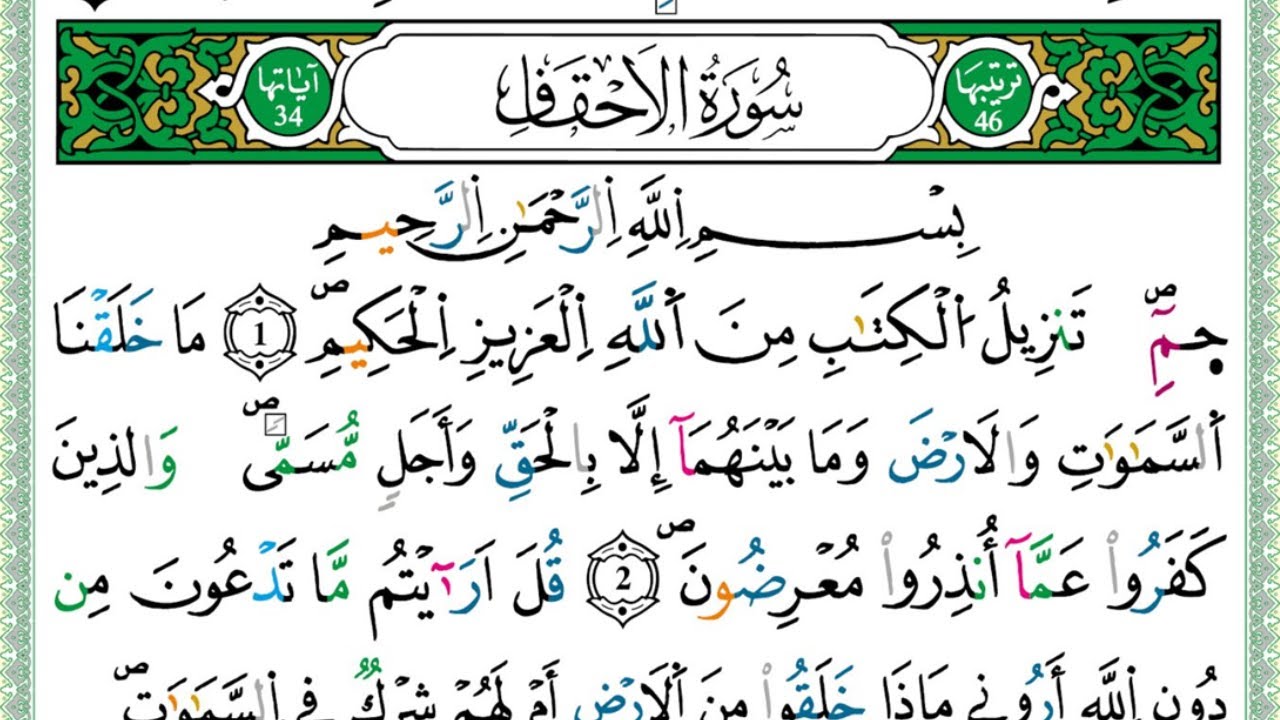 ترتيبها 46 سُورَةُ الاَحْقَافِ آياتها 34
بِسْمِ اِ۬للَّهِ اِ۬لرَّحْمَٰنِ اِ۬لرَّحِيمِ
جمٓۖ تَنزِيلُ اُ۬لْكِتَٰبِ مِنَ اَ۬للَّهِ اِ۬لْعَزِيزِ اِ۬لْحَكِيمِۖ 1 مَا خَلَقْنَا
اَ۬لسَّمَٰوَٰتِ وَالَارْضَ وَمَا بَيْنَهُمَآ إِلَّا بِالْحَقِّ وَأَجَلٖ مُّسَمّيٗۖ وَالذِينَ
كَفَرُواْ عَمَّآ أُنذِرُواْ مُعْرِضُونَۖ 2 قُلَ اَرَآيْتُم مَّا تَدْعُونَ مِن
دُونِ اِ۬للَّهِ أَرُونِي مَاذَا خَلَقُواْ مِنَ اَ۬لَارْضِ أَمْ لَهُمْ شِرْكٞ فِي اِ۬لسَّمَٰوَٰتِۖ